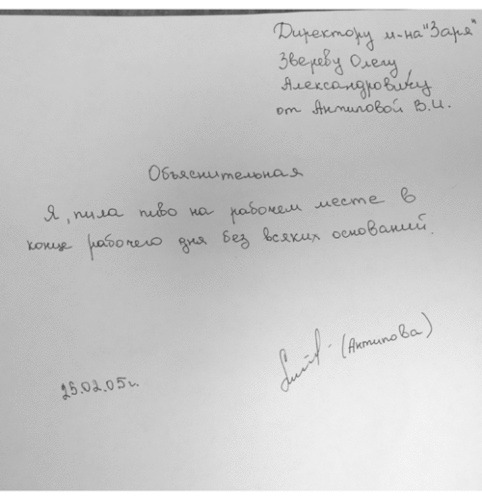 Директору м-на "Заря"
Звереву Олегу
Александровичу
от Антиповой В.И.
Объяснительная
Я, пила пиво на рабочем месте в
конце рабочего дня без всяких оснований.
(Антипова)
25.02.05г.